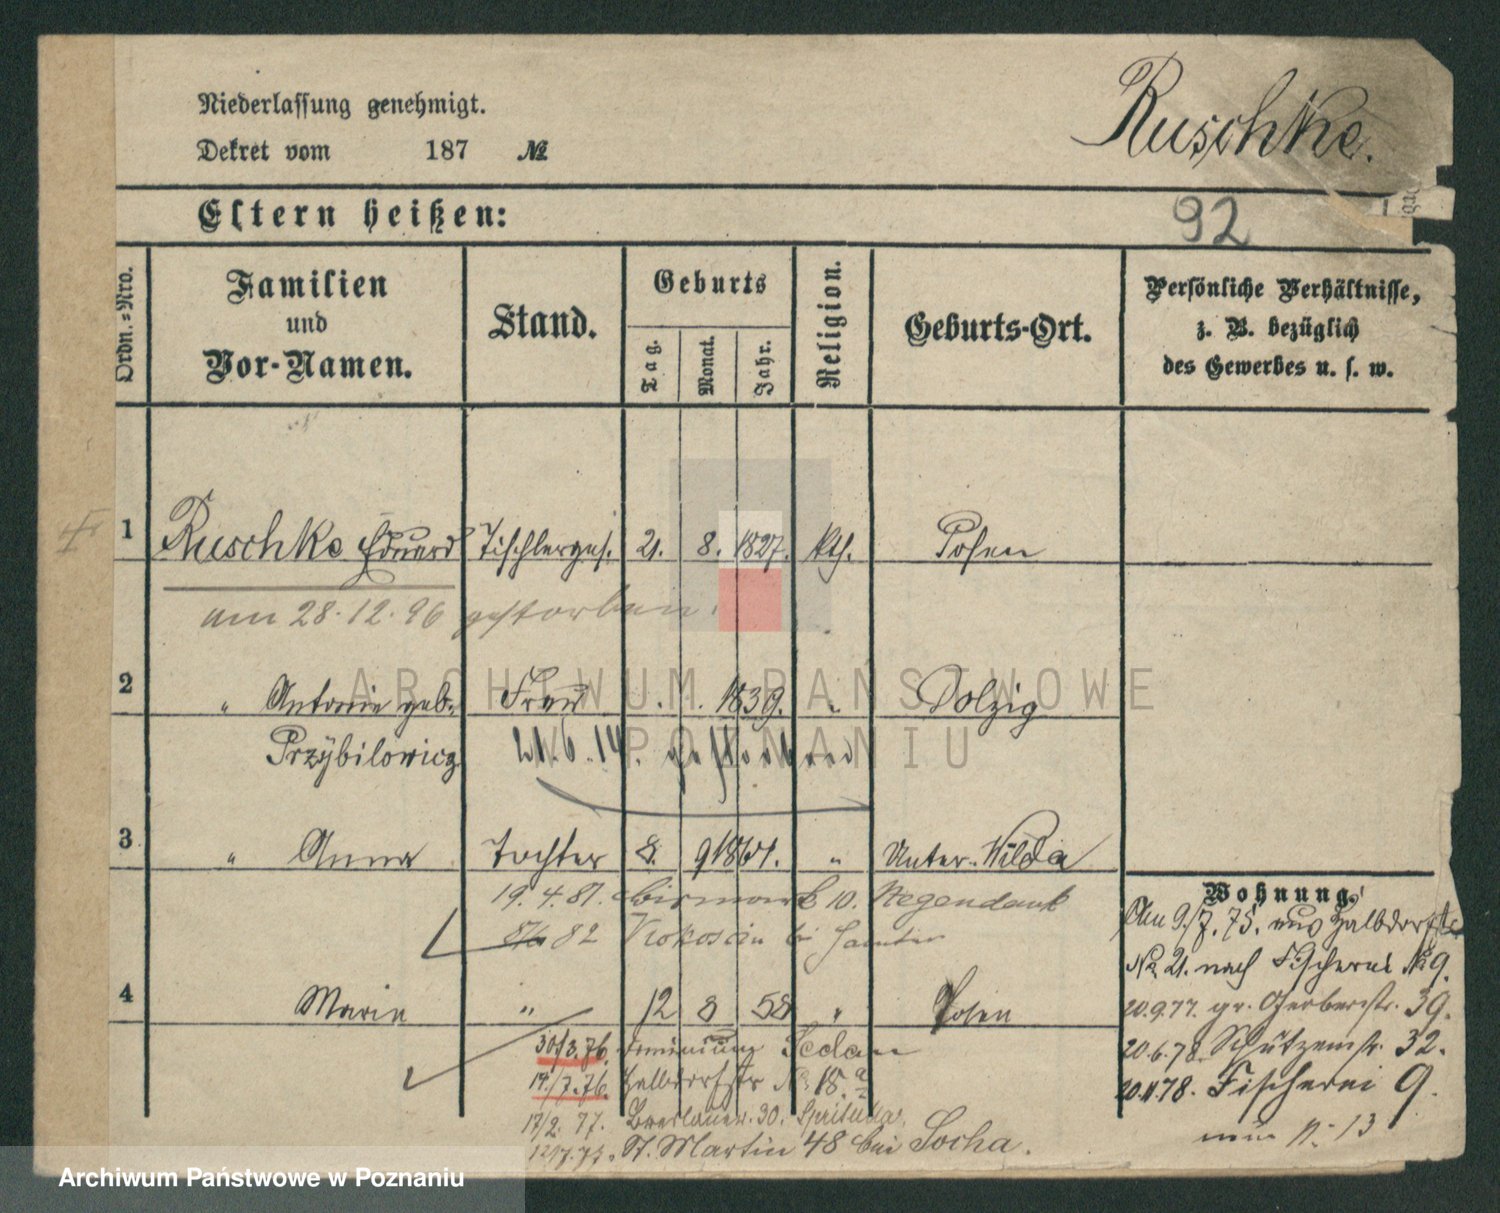 Niederlassung genehmigt.
Dekret vom 187 №
Ruschke.
Eltern heißen:
92
Ordn.=Nro.
Familien
und
Vor-Namen.
Stand.
Geburts
Tag.
Monat.
Jahr.
Religion.
Geburts-Ort.
Persönliche Verhältnisse,
z. B. bezüglich
des Gewerbes u. s. w.
1 Ruschke Eduard Tischlerges. 21. 8. 1827. kth. Posen
am 28.12.96 gestorben.
2 " Antonie geb. Frau . . 1839. " Dolzig
Przybilowicz 21.6.14. gestorben
3 " Anna Tochter 8. 9 1861. " Unter-Wilda
19.4.81. 10. Regendank
82 Krokoscin bei Samter
Wohnung.
Am 9/7.75. aus Halbdorfstr
No 21. nach Fischerei No 9.
4 Marie " 12 8 58 " Posen
20.9.77. gr. Gerberstr. 39.
20.6.78. Schützenstr. 32.
20.11.78. Fischerei 9.
nun N: 13
30/3.76. Sedan
14/7.76. Halbdorfstr No 18.
17/2. 77. Breslauer. 30.
St. Martin 48 bei Socha.
ARCHIWUM PAŃSTWOWE
W POZNANIU
Archiwum Państwowe w Poznaniu